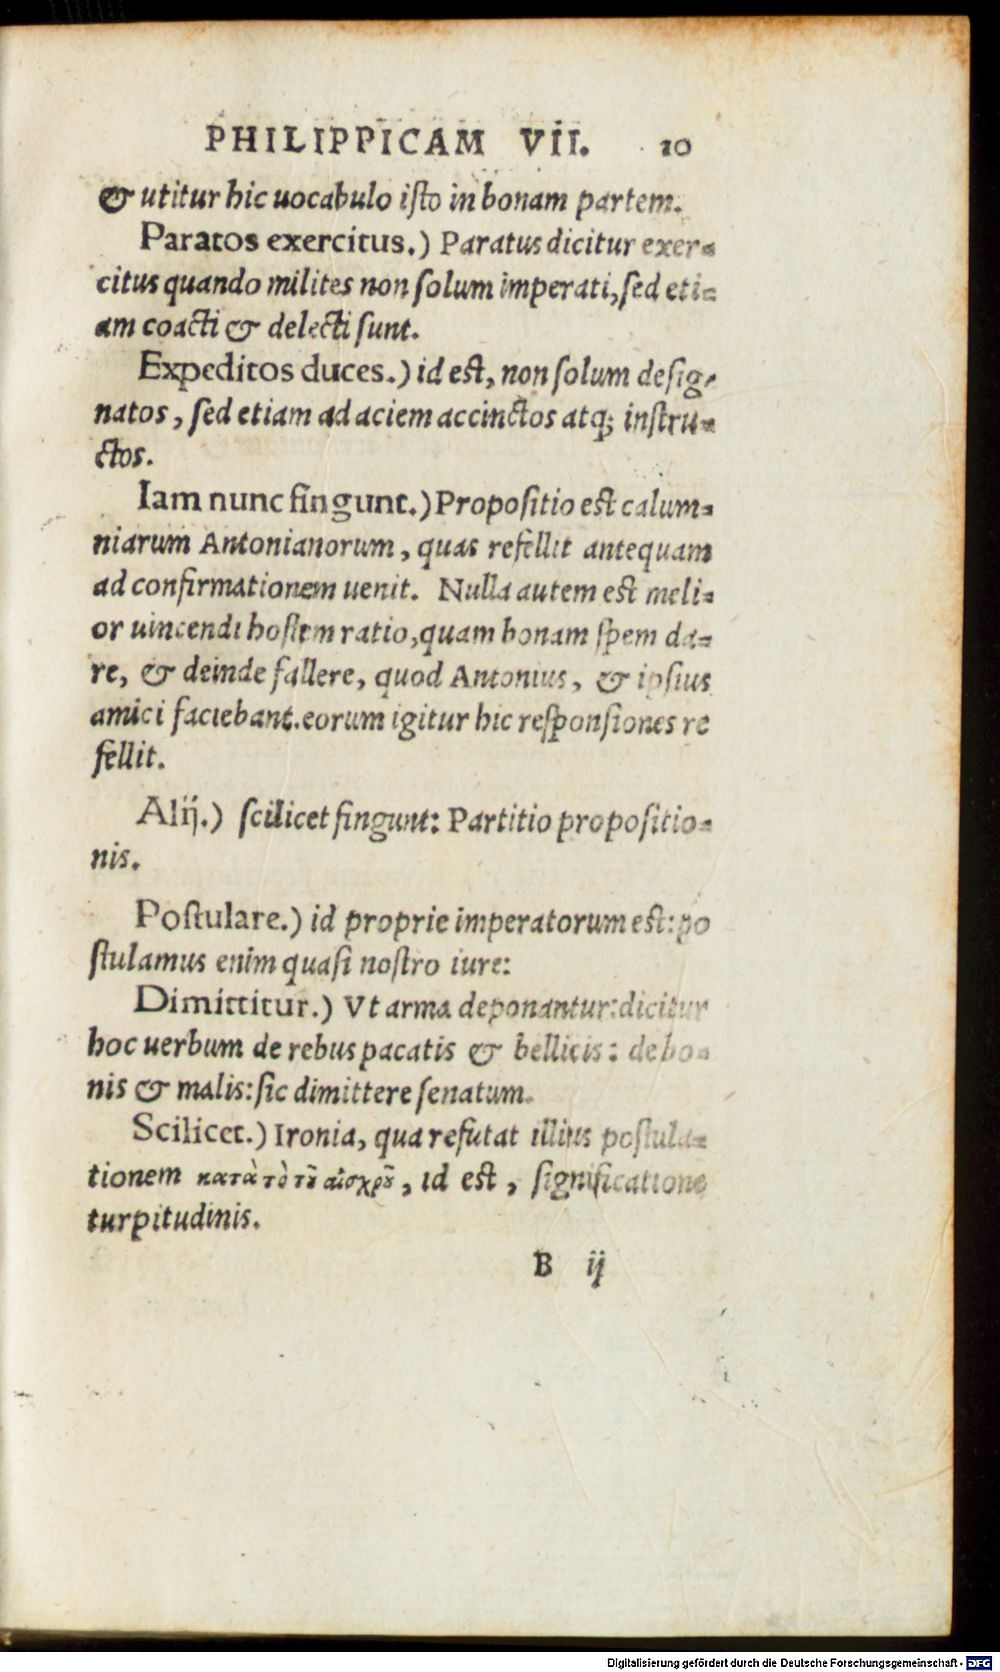 PHILIPPICAM VII. 10
& utitur hic uocabulo isto in bonam partem.
Paratos exercitus.) Paratus dicitur exer=
citus quando milites non solum imperati, sed eti=
am coacti & delecti sunt.
Expeditos duces.) id est, non solum desig=
natos, sed etiam ad aciem accinctos atq; instru=
ctos.
Iam nunc fingunt.) Propositio est calum=
niarum Antonianorum, quas refellit antequam
ad confirmationem uenit. Nulla autem est meli=
or uincendi hostem ratio, quam bonam spem da=
re, & deinde fallere, quod Antonius, & ipsius
amici faciebant. eorum igitur hic responsiones re
fellit.
Alij.) scilicet fingunt: Partitio propositio=
nis.
Postulare.) id proprie imperatorum est: po
stulamus enim quasi nostro iure:
Dimittitur.) Vt arma deponantur: dicitur
hoc uerbum de rebus pacatis & bellicis: de bo=
nis & malis: sic dimittere senatum.
Scilicet.) Ironia, qua refutat illius postula=
tionem κατὰ τὸ τȣ̃ αἰσχρȣ̃, id est, significatione
turpitudinis.
B ij
Digitalisierung gefördert durch die Deutsche Forschungsgemeinschaft - DFG